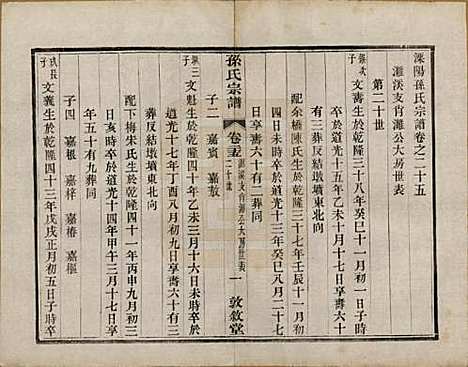 溧陽孫氏宗譜卷之三十五
灘溪支肯灘公大房世表
第二十世
張次子
文壽生於乾隆三十八年癸巳十一月初一日子時
卒於道光十五年乙未十月十七日享壽六十
有三葬反結墩墳東北向
配余橋陳氏生於乾隆三十七年壬辰十一月初
四日未時卒於道光十三年癸巳八月二十七
日享壽六十有二葬同
子二 嘉賓 嘉敖
孫氏宗譜
卷三十五
灘溪支肯灘公大房世表
二十世
一
敦敘堂
張三子
文魁生於乾隆四十年乙未三月十六日未時卒於
道光十七年丁酉八月初九日享壽六十有三
葬反結墩墳東北向
配下梅宋氏生於乾隆四十一年丙申九月初一
日亥時卒於道光十四年甲午三月十七日
年五十有九葬同
子四 嘉根 嘉梓 嘉椿 嘉樞
長子
文義生於乾隆四十三年戊戌正月初五日子時卒